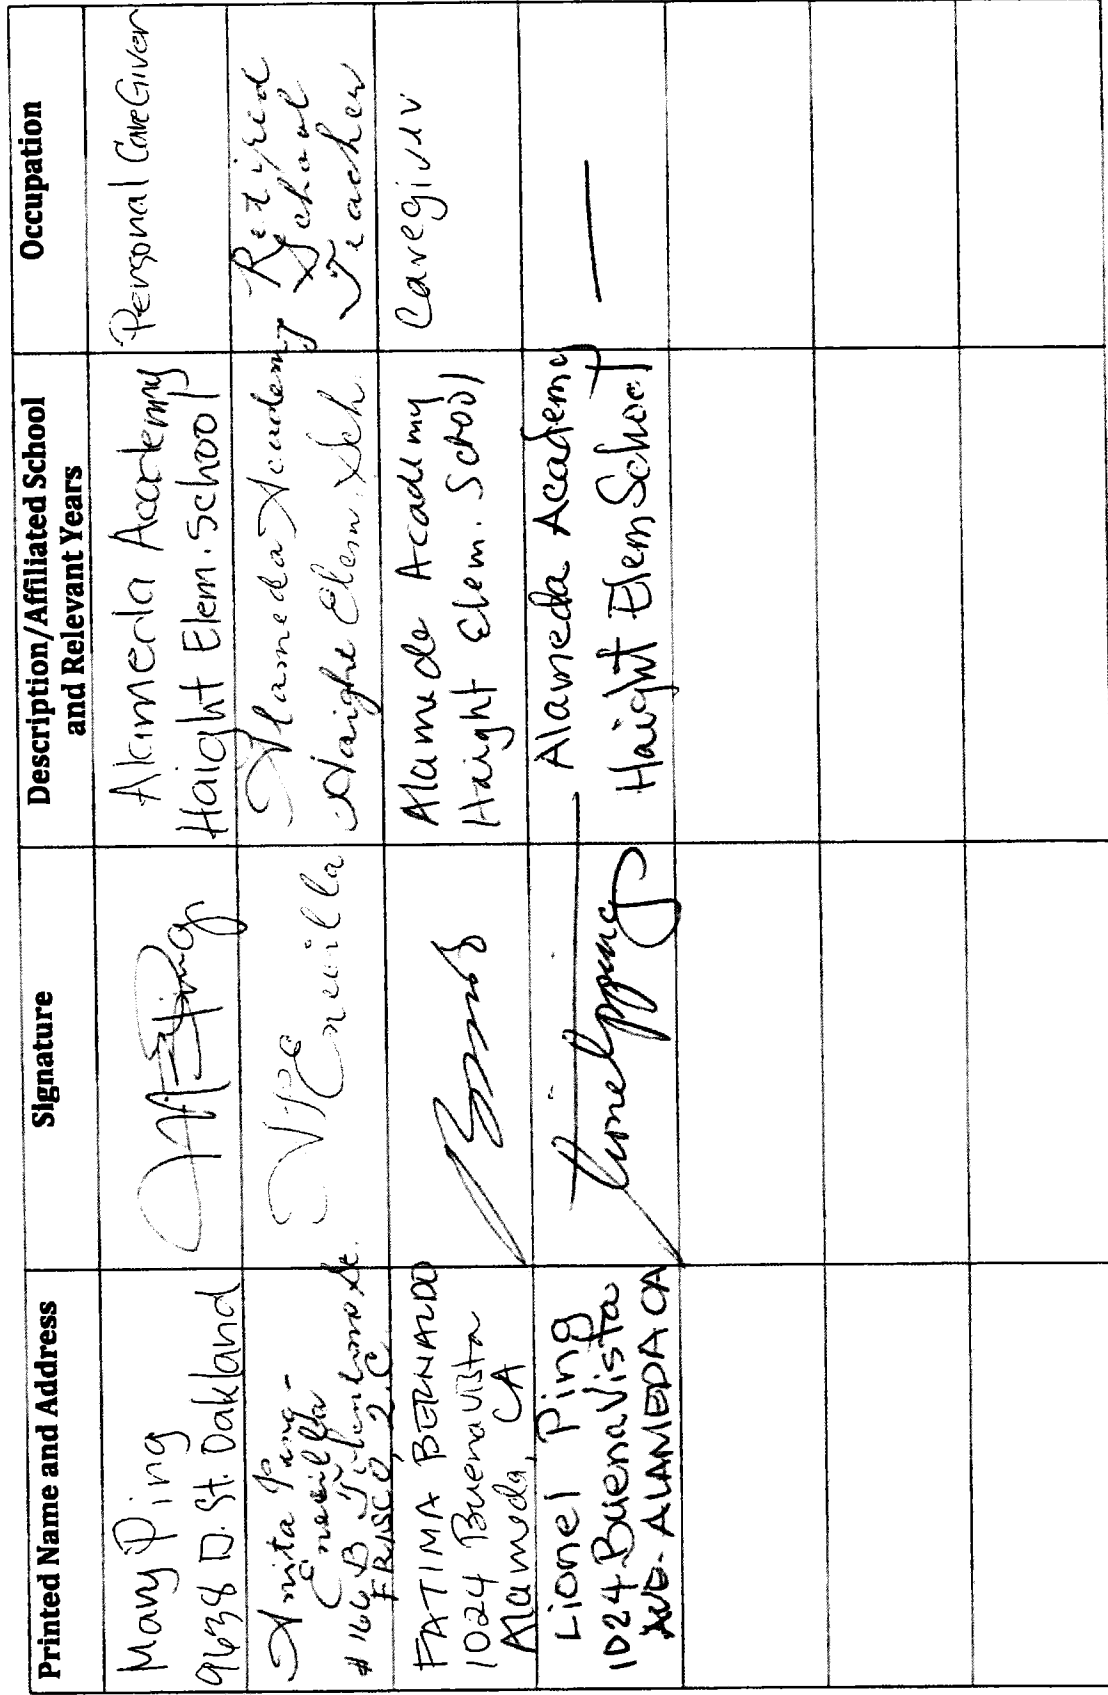 Printed Name and Address
Signature
Description/Affiliated School
and Relevant Years
Occupation
Mary Ping
9638 D. St. Oakland
Alameda Academy
Haight Elem. School
Personal CareGiver
Anita Ping-
Encilla
#166 B
FRISCO,
Alameda Academy
Haight Elem. Sch.
Retired
School
Teacher
FATIMA BERNALDO
1024 Buena Vista
Alameda, CA
Alameda Academy
Haight Elem. School
Caregiver
Lionel Ping
1024 Buena Vista
AVE. ALAMEDA CA
Alameda Academy
Haight Elem School
—